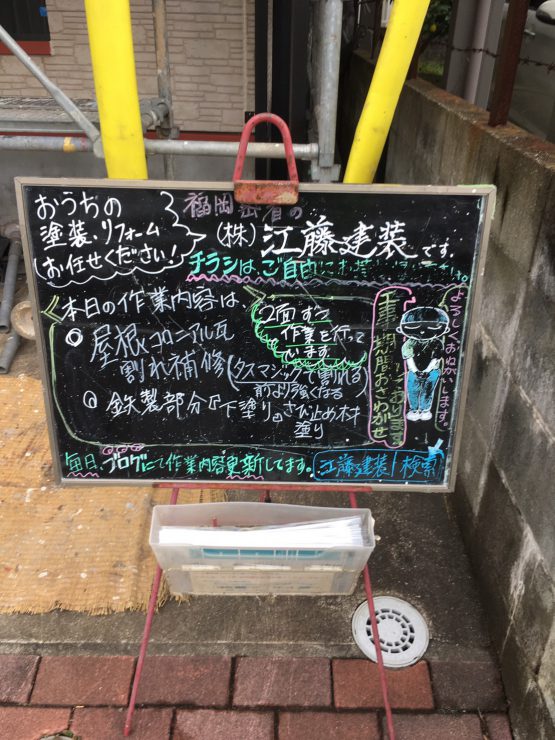 おうちの
塗装・リフォーム
お任せください!
福岡
の
(株)江藤建装です。
チラシは、ご自由に
本日の作業内容は
◎ 屋根
コロニアル瓦
割れ補修
(タスマジックで割れる
前より強くなる
2面ずつ
作業を行って
います
◎ 鉄製部分
下塗り
さび止め材
塗り
工事期間おさわがせ
しております
よろしくおねがいします。
毎日、ブログにて作業内容更新してます。
江藤建装|検索